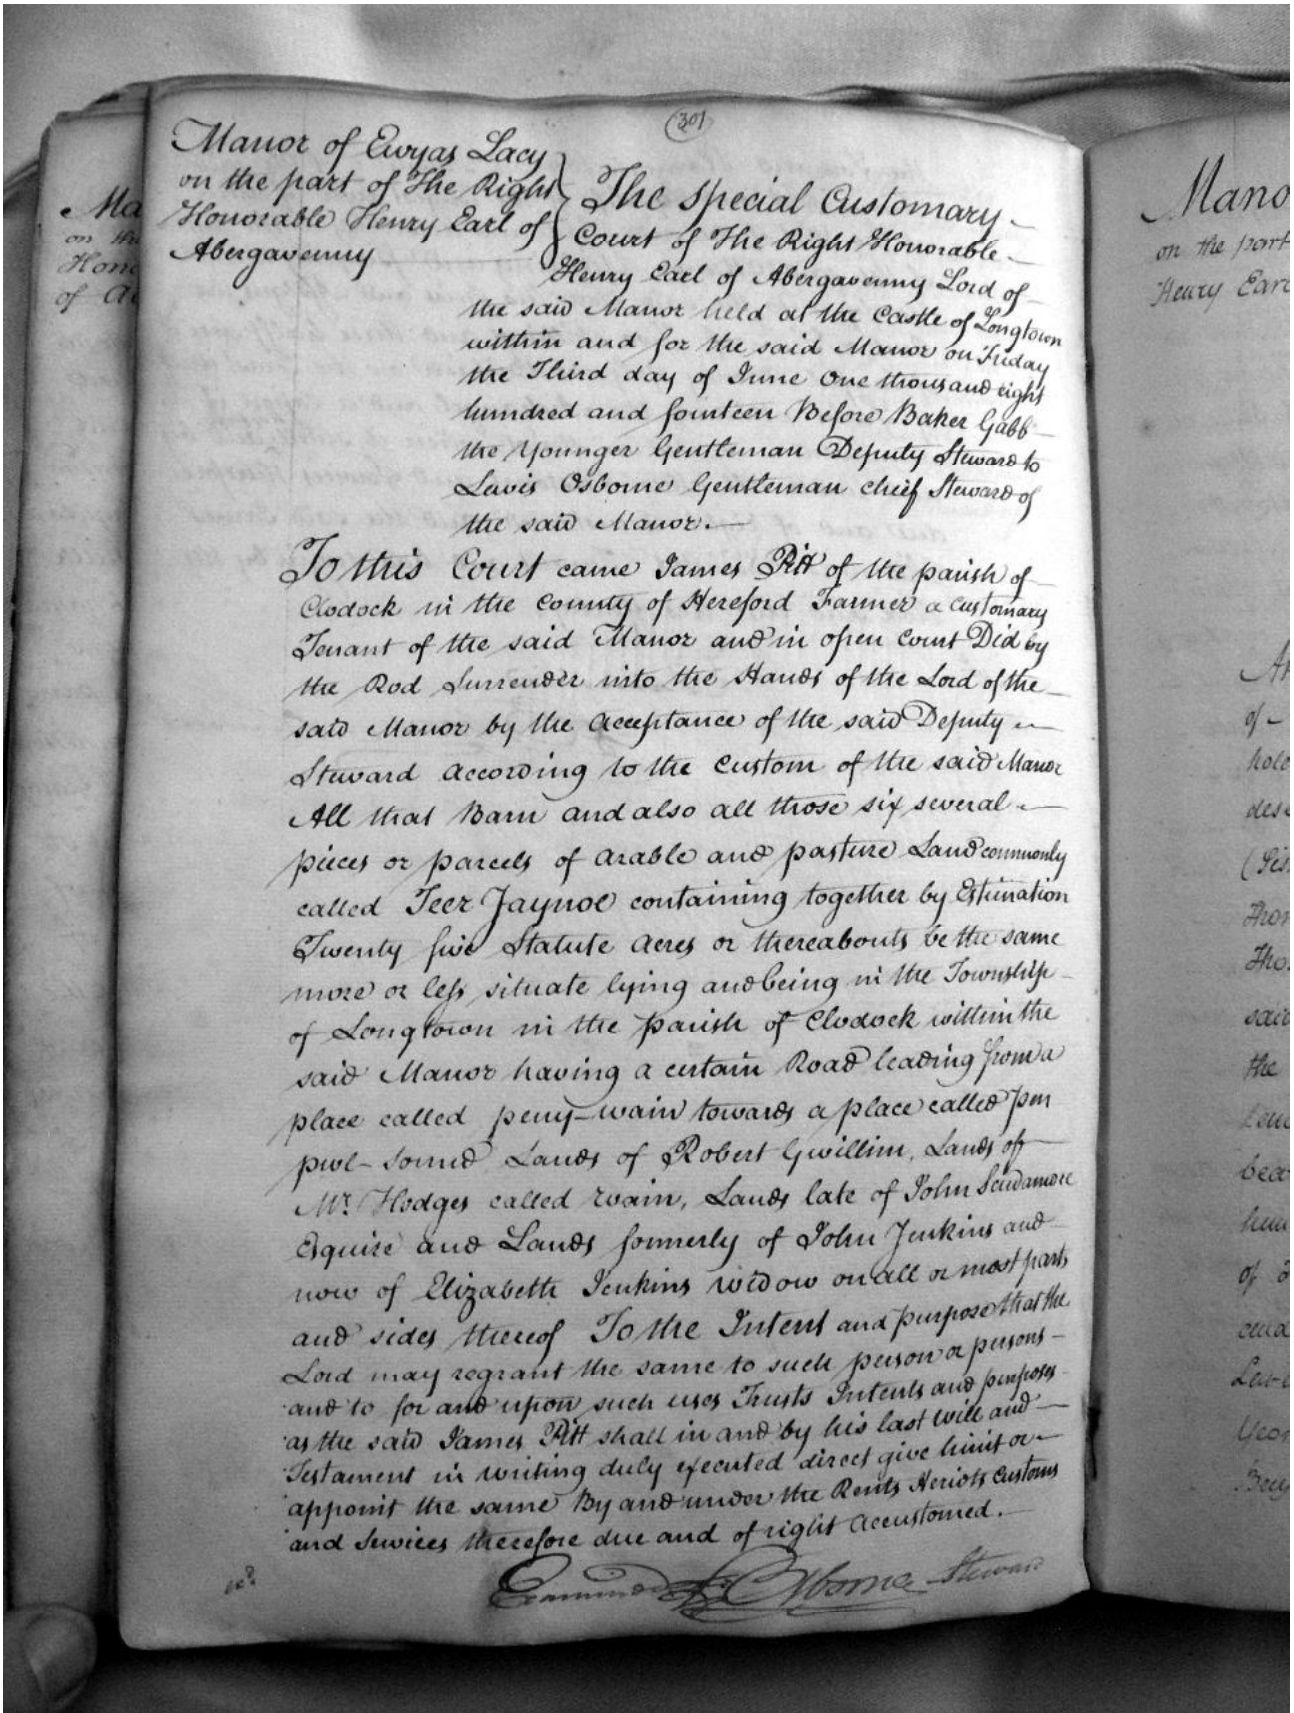 301
Manor of Ewyas Lacy
on the part of The Right
Honorable Henry Earl of
Abergavenny
The special Customary
Court of The Right Honorable
Henry Earl of Abergavenny Lord of
the said Manor held at the Castle of Longtown
within and for the said Manor on Friday
the Third day of June One thousand eight
hundred and fourteen Before Baker Gabb
the Younger Gentleman Deputy Steward to
Lewis Osborne Gentleman chief Steward of
the said Manor.
To this Court came James Pitt of the parish of
Clodock in the County of Hereford Farmer a Customary
Tenant of the said Manor and in open Court Did by
the Rod Surrender into the Hands of the Lord of the
said Manor by the acceptance of the said Deputy
Steward according to the Custom of the said Manor
All that Barn and also all those six several
pieces or parcels of arable and pasture Land commonly
called Teer Jaynoe containing together by Estimation
Twenty five Statute acres or thereabouts be the same
more or less situate lying and being in the Township
of Longtown in the parish of Clodock within the
said Manor having a certain Road leading from a
place called penny-wain towards a place called pen
pwl-sound Lands of Robert Gwillim, Lands of
Mr. Hodges called wain, Lands late of John Scudamore
Esquire and Lands formerly of John Jenkins and
now of Elizabeth Jenkins widow on all or most parts
and sides thereof To the Intent and purpose that the
Lord may regrant the same to such person or persons
and to for and upon such uses Trusts Intents and purposes
as the said James Pitt shall in and by his last will and
Testament in writing duly executed direct give limit or
appoint the same By and under the Rents Heriots Customs
and Services therefore due and of right accustomed.
Examined Osborne Steward
Mano
on the part
Henry Earl
of
hold
said
the
of
Ma
on the
Hono